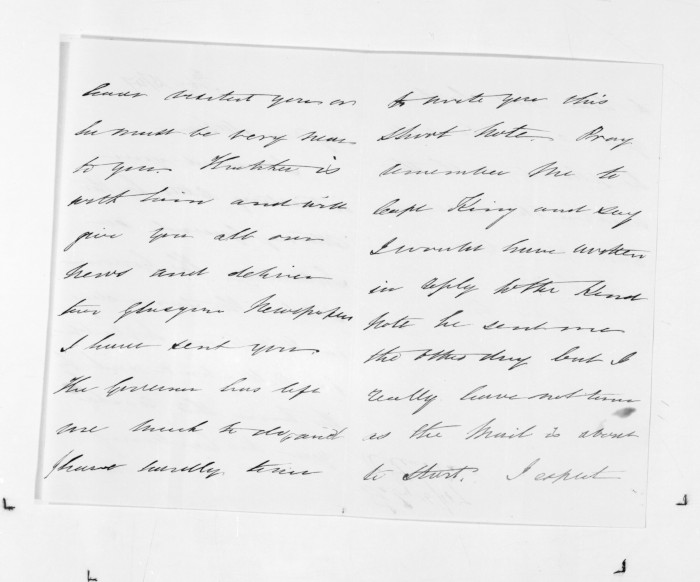 have visited you or
he must be very near
to you. is
with him and will
give you all our
news and deliver
two Glasgow Newspapers
I have sent you.
The Governor has left
me much to do, and
I have hardly time
to write you this
short note. Pray
remember me to
Capt King and say
I would have written
in reply to the kind
note he sent me
the other day but I
really have not time
as the Mail is about
to start. I expect